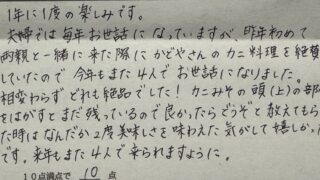 1年に1度の楽しみです。
夫婦では毎年お世話になっていますが、昨年初めて
両親と一緒に来た際にかどやさんのカニ料理を絶賛
していたので今年もまた4人でお世話になりました。
相変わらずどれも絶品でした！カニみその頭(上)の部
をはがすとまだ残っているので良かったらどうぞと教えてもら
た時はなんだか2度美味しさを味わえた気がして嬉しかっ
です。来年もまた4人で来られますように。
10点満点で 10 点